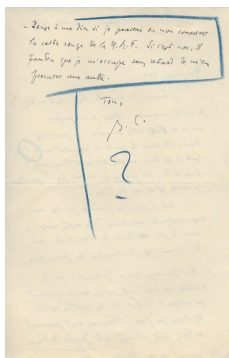 - Pense à me dire si je pourrai ou non conserver
la carte rouge de la N.R.F. Si c'est non, il
faudra que je m'occupe sans retard de m'en
procurer une autre.
Ton,
?